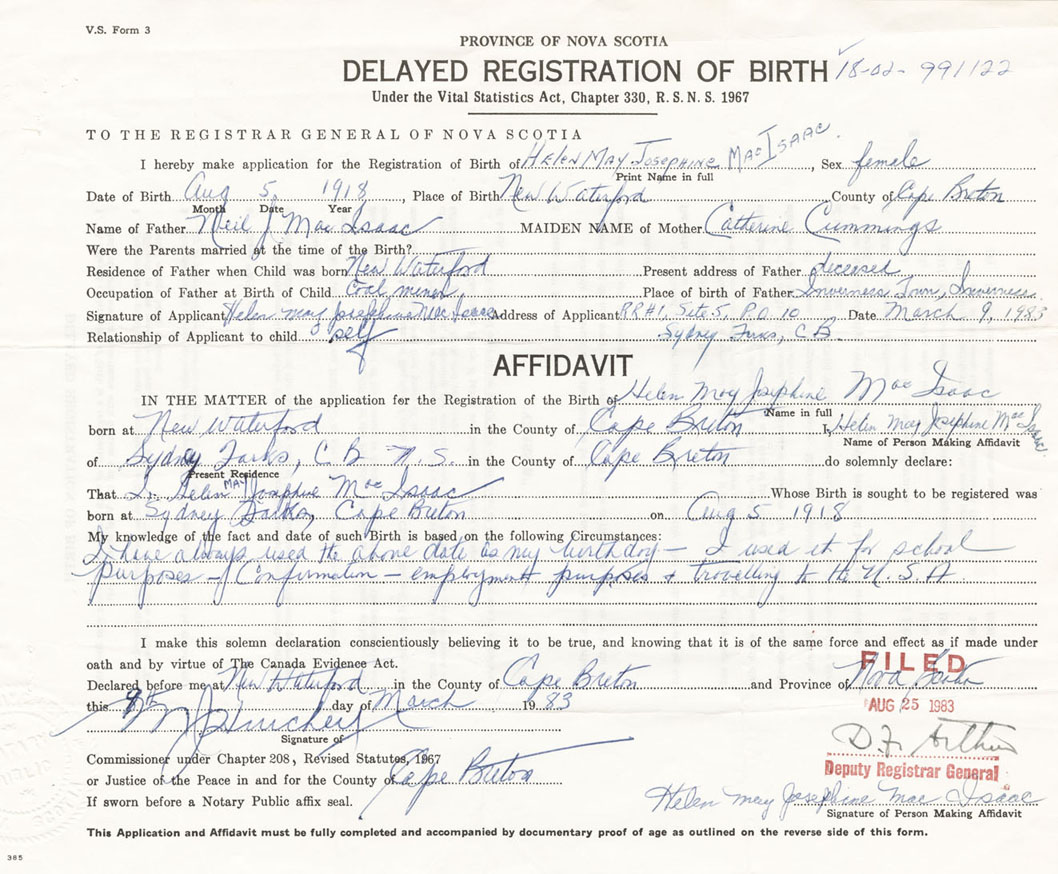 V.S. Form 3
PROVINCE OF NOVA SCOTIA
DELAYED REGISTRATION OF BIRTH 18-02-991122
Under the Vital Statistics Act, Chapter 330, R. S. N. S. 1967
TO THE REGISTRAR GENERAL OF NOVA SCOTIA
I hereby make application for the Registration of Birth of Helen May Josephine MacIsaac. Sex female
Print Name in full
Date of Birth Aug 5, 1918, Place of Birth New Waterford County of Cape Breton
Month Date Year
Name of Father Neil J. MacIsaac MAIDEN NAME of Mother Catherine Cummings
Were the Parents married at the time of the Birth?
Residence of Father when Child was born New Waterford Present address of Father deceased
Occupation of Father at Birth of Child Coal miner Place of birth of Father Inverness Town, Inverness
Signature of Applicant Helen May Josephine MacIsaac Address of Applicant RR#1, Site 5, P.O. 10 Date March 9, 1983
Relationship of Applicant to child self Sydney Forks, C.B.
AFFIDAVIT
IN THE MATTER of the application for the Registration of the Birth of Helen May Josephine Mac Isaac
Name in full
born at New Waterford in the County of Cape Breton I, Helen May Josephine MacIsaac
Name of Person Making Affidavit
of Sydney Forks, C B N.S. in the County of Cape Breton do solemnly declare:
Present Residence
That I Helen May Josephine Mac Isaac Whose Birth is sought to be registered was
born at Sydney Forks, Cape Breton on Aug 5 1918
My knowledge of the fact and date of such Birth is based on the following Circumstances:
I have always used the above date as my birthday - I used it for school
purposes - Confirmation - employment purposes & travelling to the U.S.A.
I make this solemn declaration conscientiously believing it to be true, and knowing that it is of the same force and effect as if made under
oath and by virtue of The Canada Evidence Act.
FILED
Declared before me at New Waterford in the County of Cape Breton and Province of Nova Scotia
this 9th day of March 1983
AUG 25 1983
Signature of
D.F. Arthur
Commissioner under Chapter 208, Revised Statutes, 1967
Deputy Registrar General
or Justice of the Peace in and for the County of Cape Breton
Helen May Josephine Mac Isaac
If sworn before a Notary Public affix seal.
Signature of Person Making Affidavit
This Application and Affidavit must be fully completed and accompanied by documentary proof of age as outlined on the reverse side of this form.
385